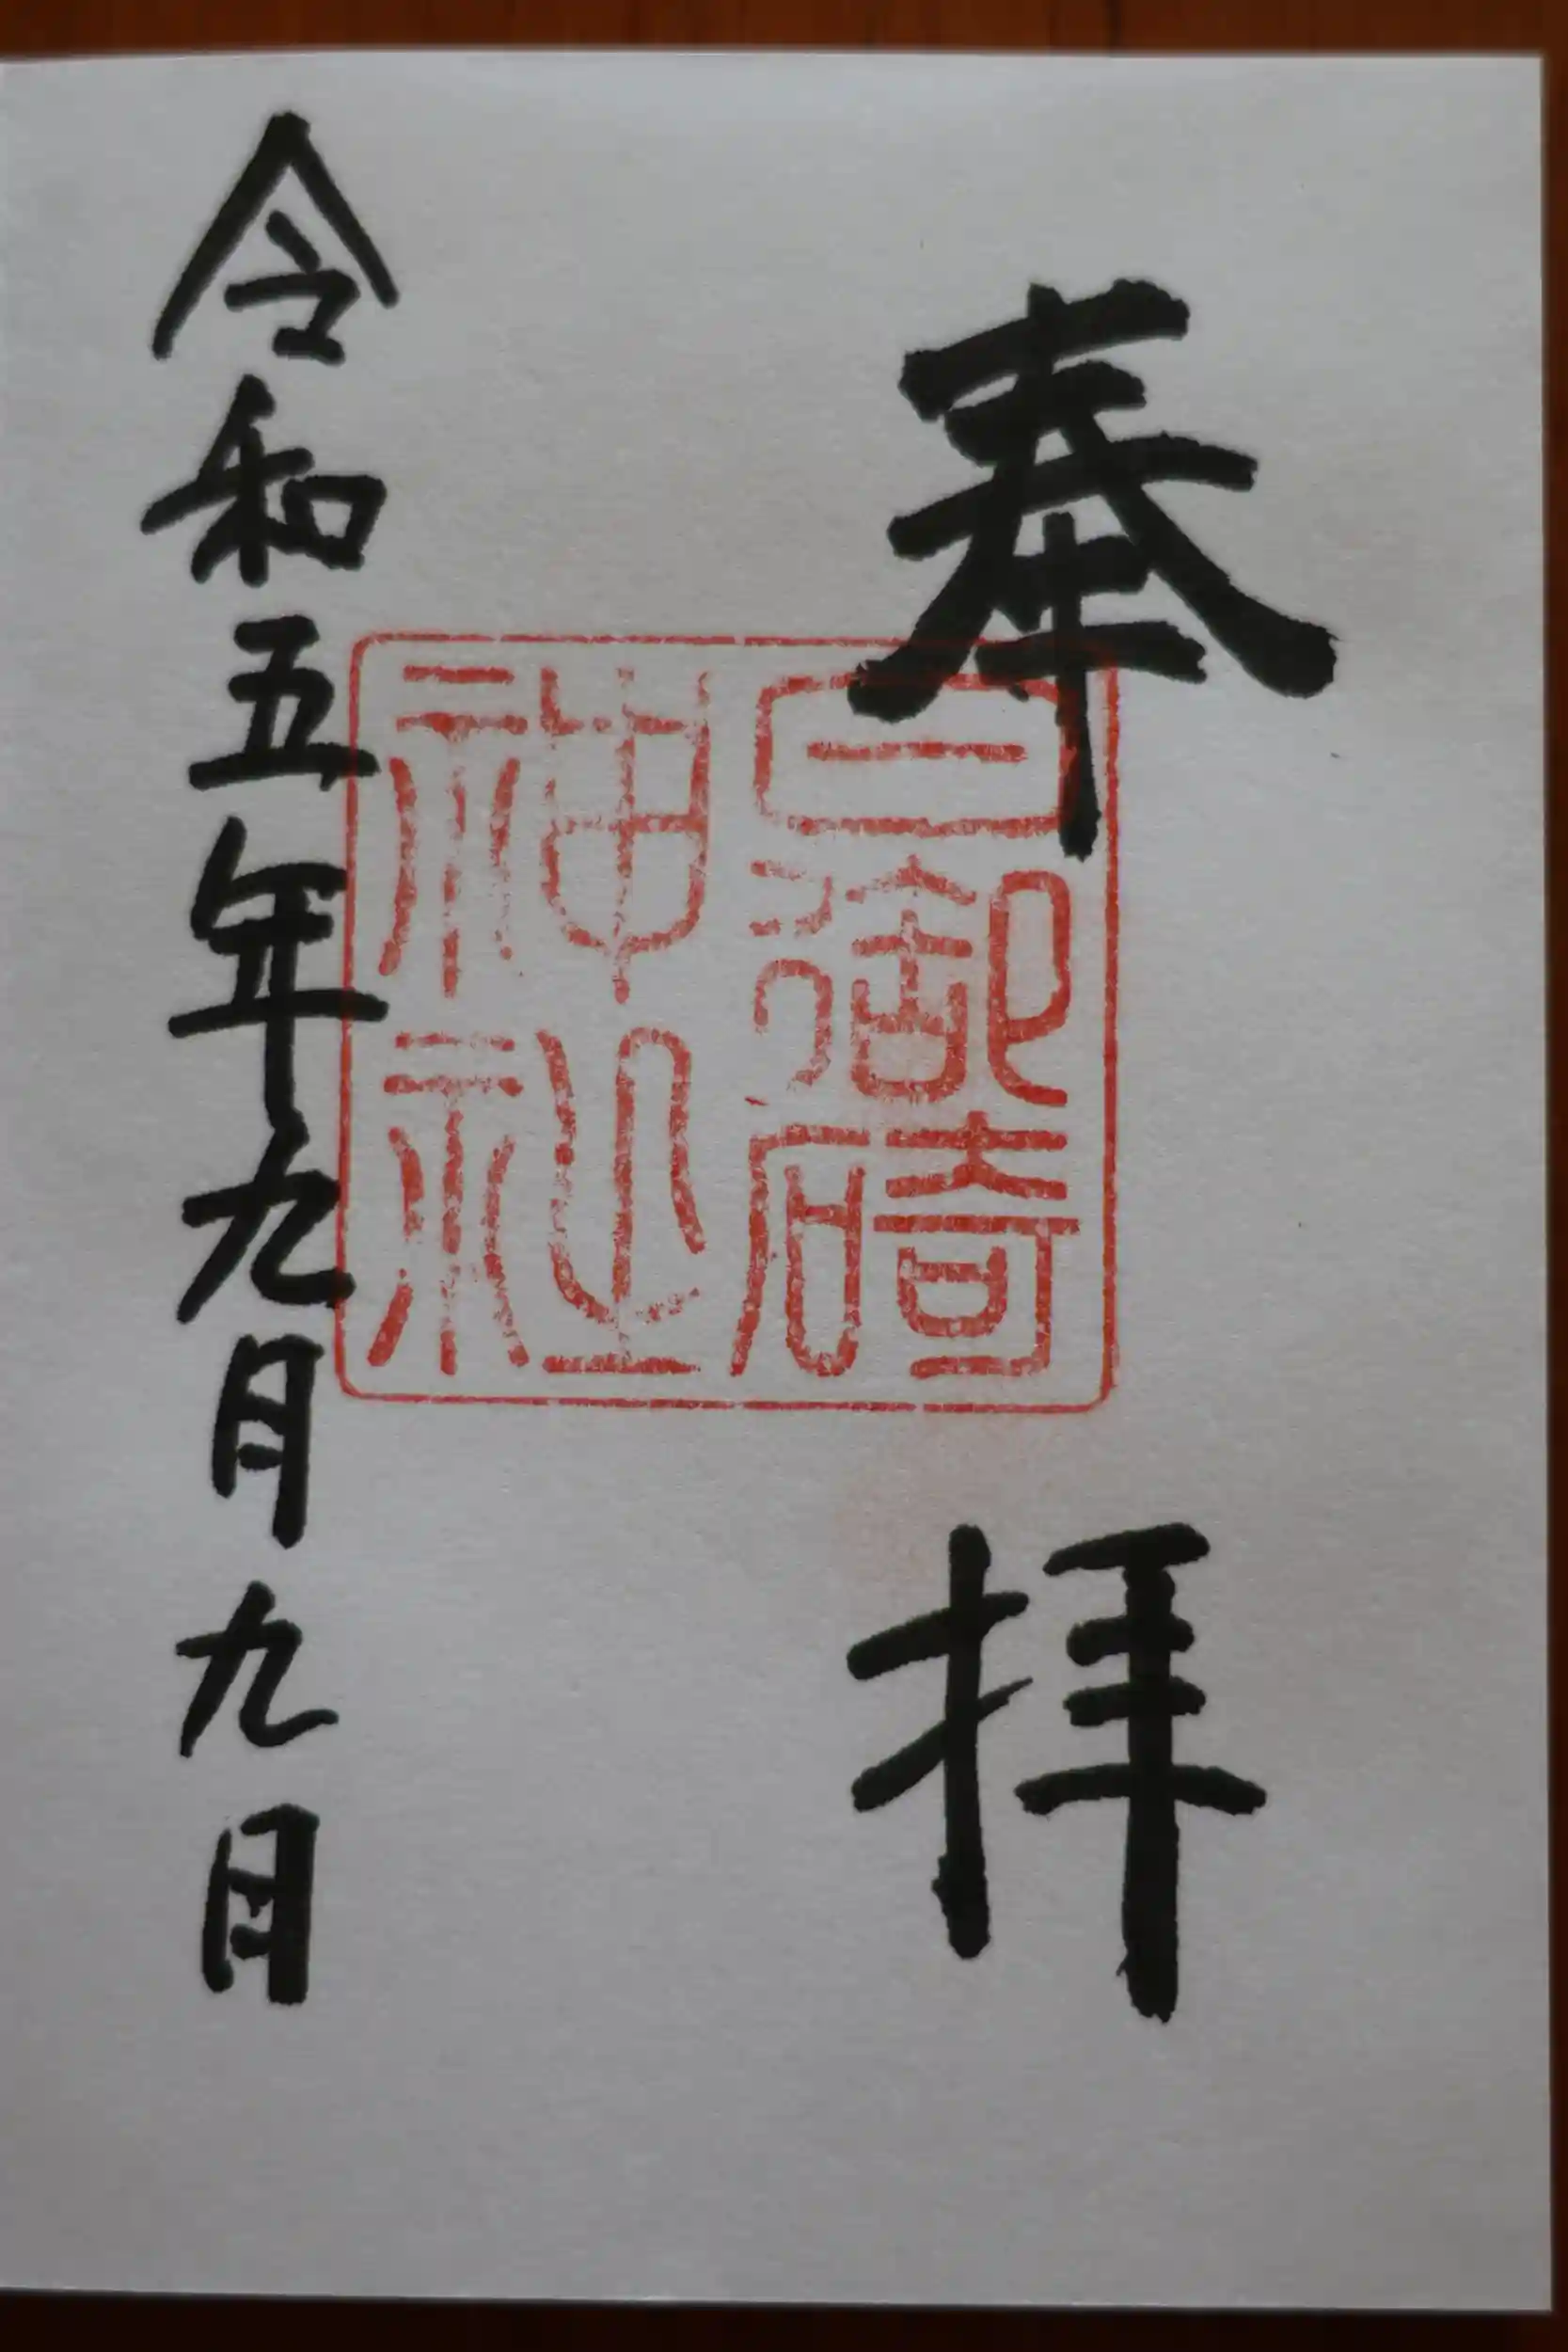 奉拝
日御碕
神社
令和五年九月九日